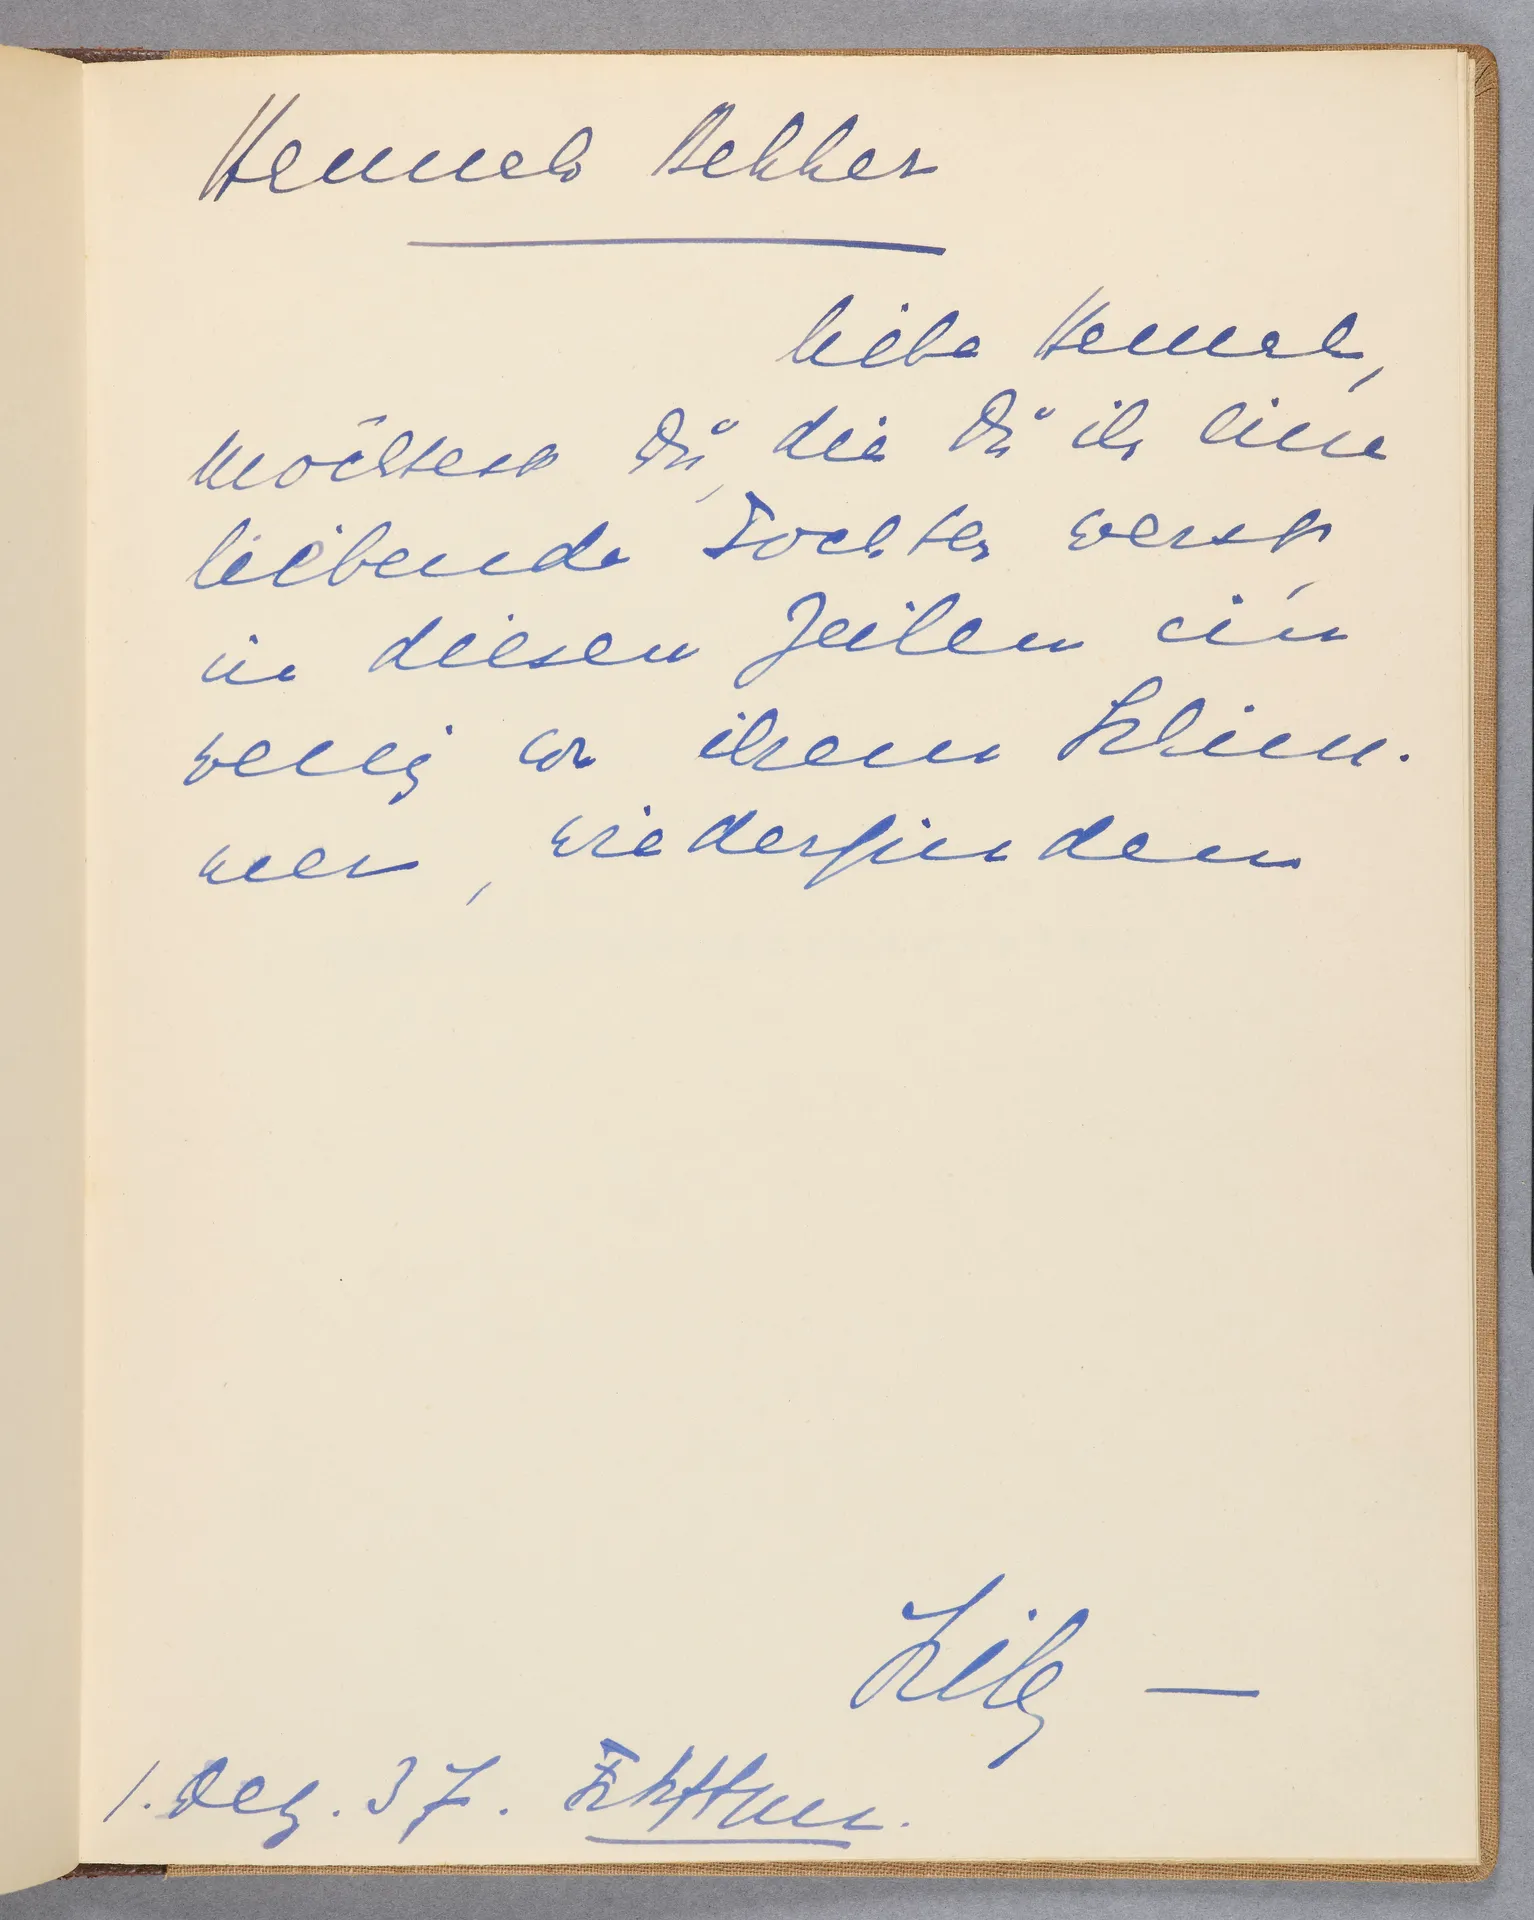 Hannah Bekker
liebe Hannah,
möchtest Du, die Du ihr eine
liebende Tochter warst,
in diesen Zeilen ein
wenig von ihrem
, wiederfinden
Lily —
1. Dez. 37.